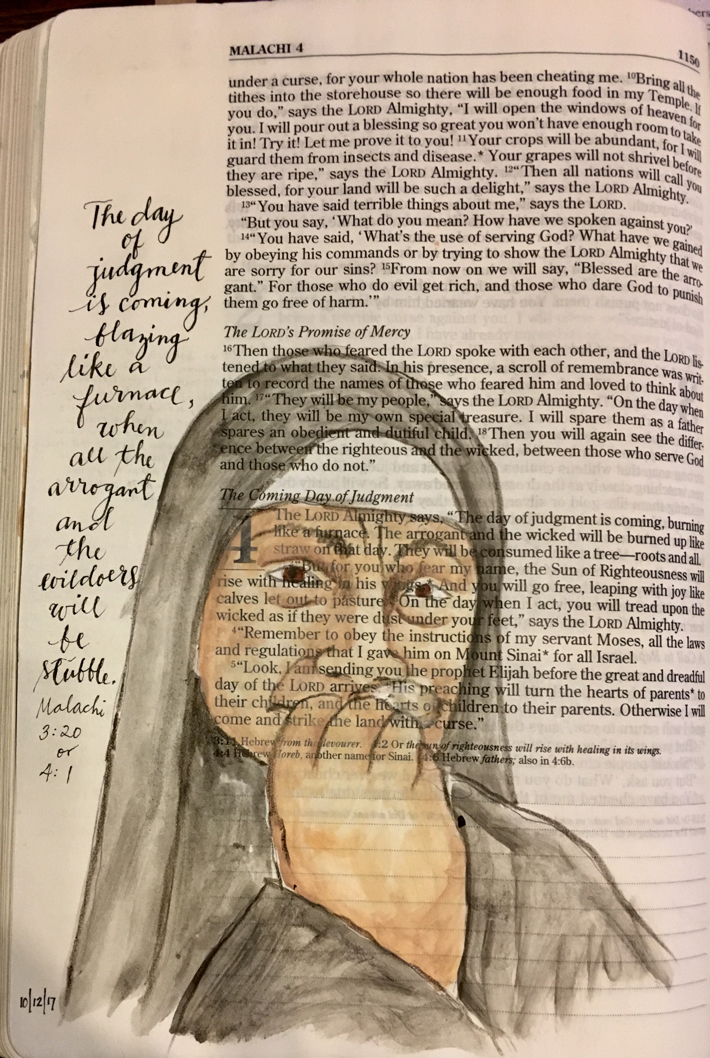 MALACHI 4
1150
under a curse, for your whole nation has been cheating me. 10Bring all the
tithes into the storehouse so there will be enough food in my Temple. If
you do,” says the LORD Almighty, “I will open the windows of heaven for
you. I will pour out a blessing so great you won’t have enough room to take
it in! Try it! Let me prove it to you! 11Your crops will be abundant, for I will
guard them from insects and disease.* Your grapes will not shrivel before
they are ripe,” says the LORD Almighty. 12“Then all nations will call you
blessed, for your land will be such a delight,” says the LORD Almighty.
13“You have said terrible things about me,” says the LORD.
“But you say, ‘What do you mean? How have we spoken against you?’
14“You have said, ‘What’s the use of serving God? What have we gained
by obeying his commands or by trying to show the LORD Almighty that we
are sorry for our sins? 15From now on we will say, “Blessed are the arro-
gant.” For those who do evil get rich, and those who dare God to punish
them go free of harm.’”
The LORD’s Promise of Mercy
16Then those who feared the LORD spoke with each other, and the LORD lis-
tened to what they said. In his presence, a scroll of remembrance was writ-
ten to record the names of those who feared him and loved to think about
him. 17“They will be my people,” says the LORD Almighty. “On the day when
I act, they will be my own special treasure. I will spare them as a father
spares an obedient and dutiful child. 18Then you will again see the differ-
ence between the righteous and the wicked, between those who serve God
and those who do not.”
The Coming Day of Judgment
4 The LORD Almighty says, “The day of judgment is coming, burning
like a furnace. The arrogant and the wicked will be burned up like
straw on that day. They will be consumed like a tree—roots and all.
“But for you who fear my name, the Sun of Righteousness will
rise with healing in his wings.* And you will go free, leaping with joy like
calves let out to pasture. On the day when I act, you will tread upon the
wicked as if they were dust under your feet,” says the LORD Almighty.
4“Remember to obey the instructions of my servant Moses, all the laws
and regulations that I gave him on Mount Sinai* for all Israel.
5“Look, I am sending you the prophet Elijah before the great and dreadful
day of the LORD arrives. His preaching will turn the hearts of parents* to
their children, and the hearts of children to their parents. Otherwise I will
come and strike the land with a curse.”
3:11 Hebrew from the devourer. 4:2 Or the sun of righteousness will rise with healing in its wings.
4:4 Hebrew Horeb, another name for Sinai. 4:6 Hebrew fathers; also in 4:6b.
The day
of
judgment
is coming,
blazing
like a
furnace,
when
all the
arrogant
and
the
evildoers
will
be
stubble.
Malachi
3:20
or
4:1
10/12/17